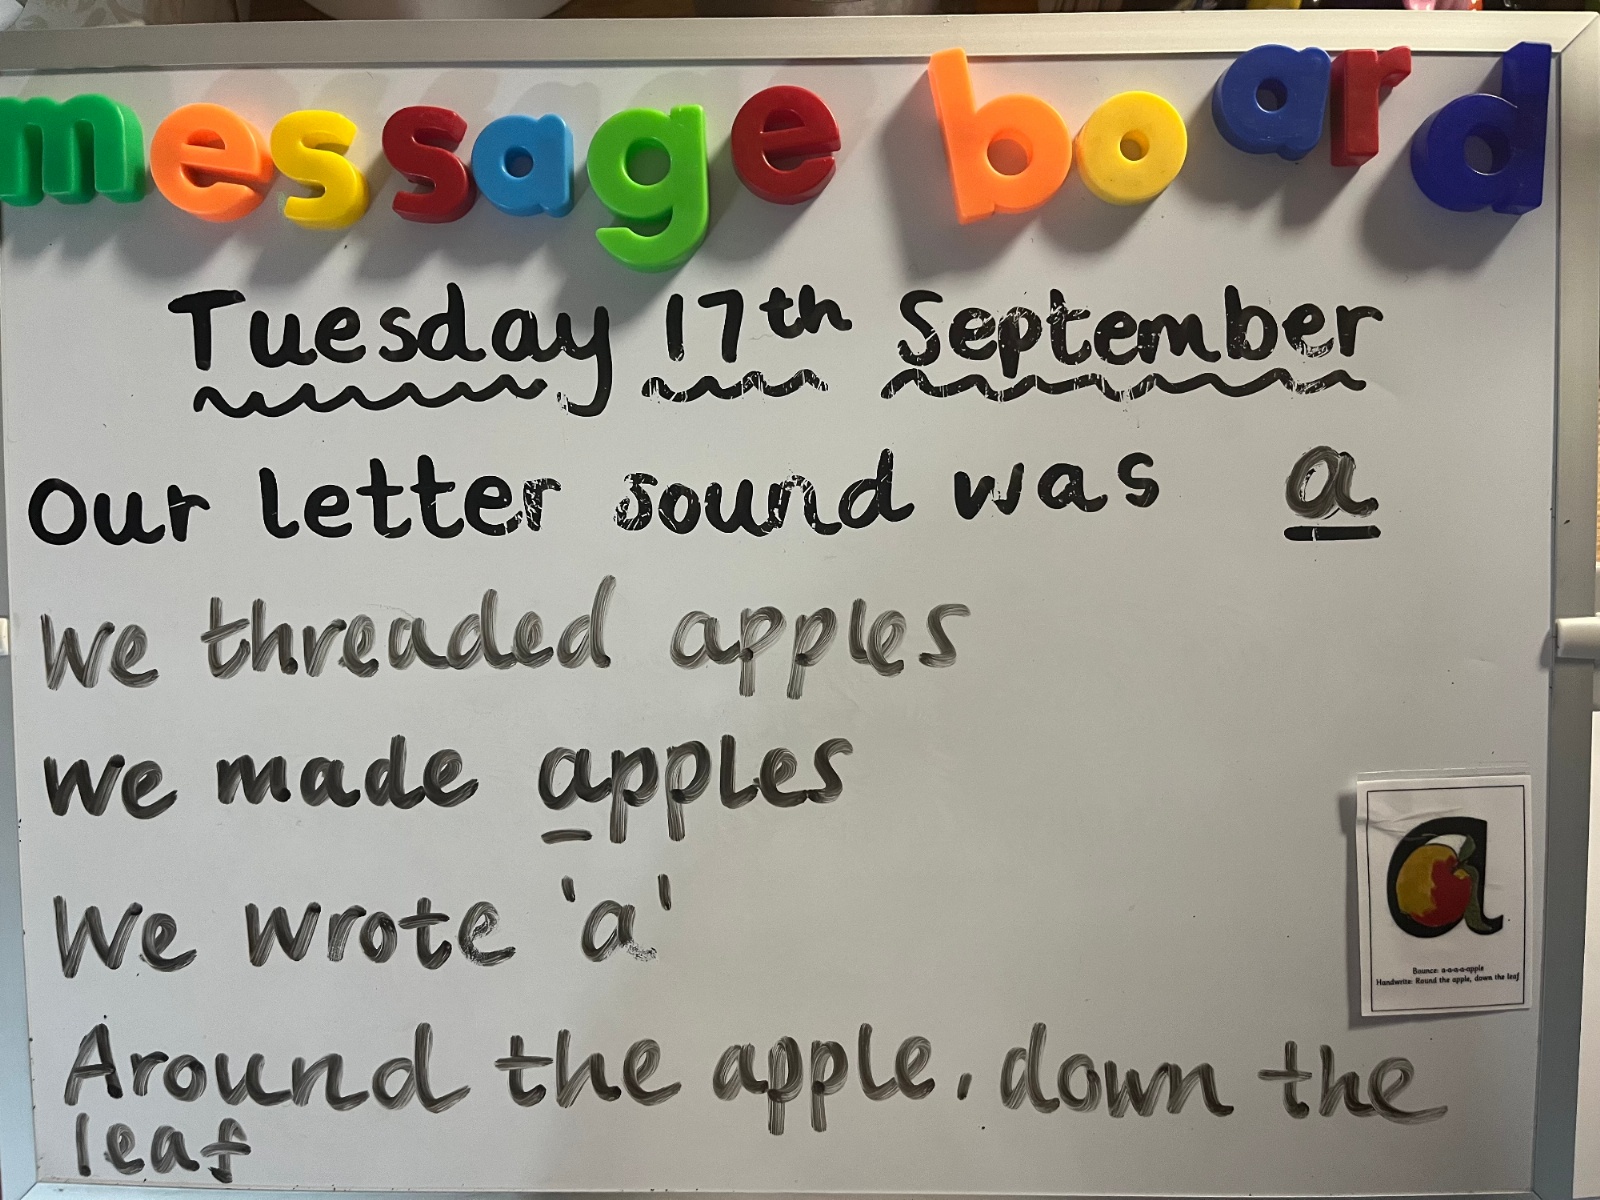 message board
Tuesday 17th September
Our letter sound was a
We threaded apples
We made apples
We wrote 'a'
a
Bounce: a-a-a-a-apple
Handwrite: Round the apple, down the leaf
Around the apple, down the
leaf